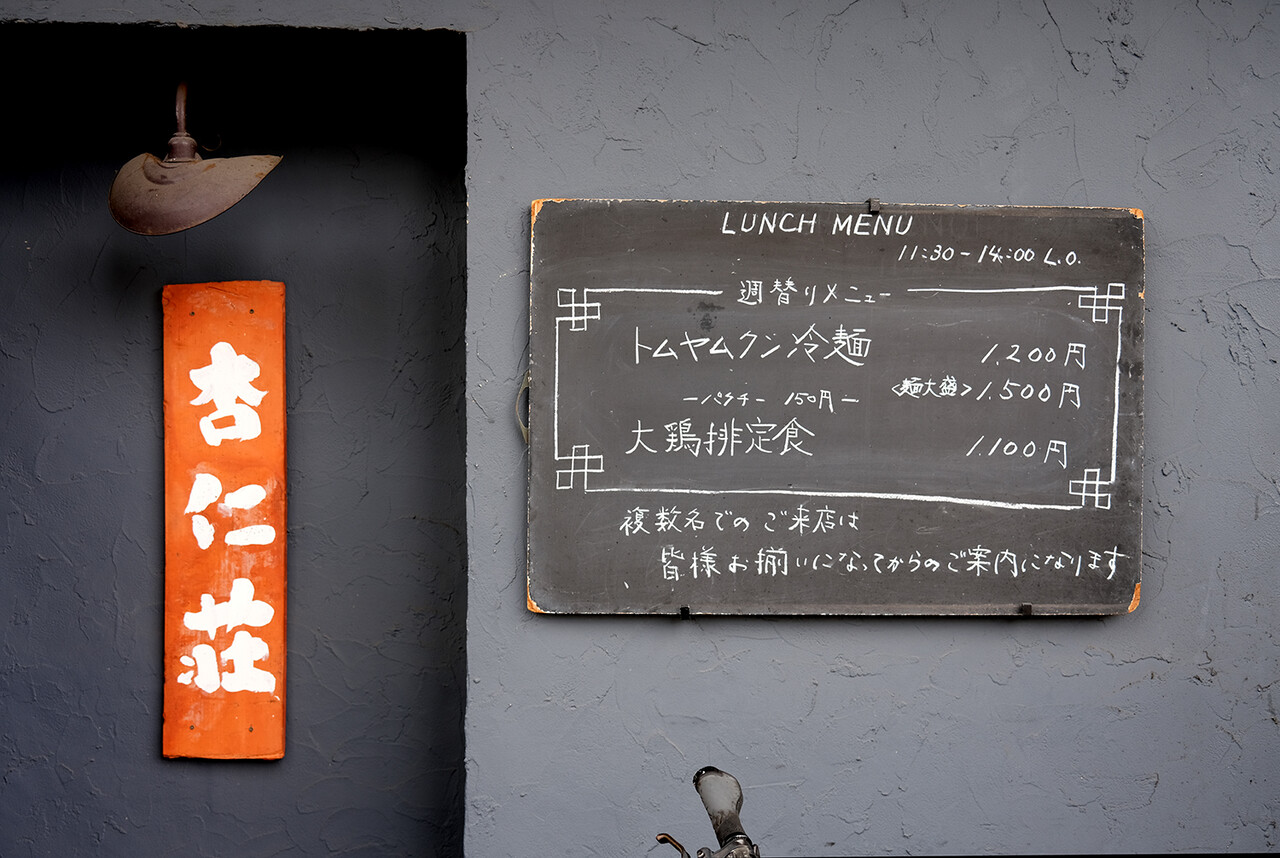 杏仁荘
LUNCH MENU
11:30-14:00 L.O.
週替りメニュー
トムヤムクン冷麺 1,200円
<麺大盛> 1,500円
ーパクチー 150円ー
大鶏排定食 1,100円
複数名でのご来店は
皆様お揃いになってからのご案内になります